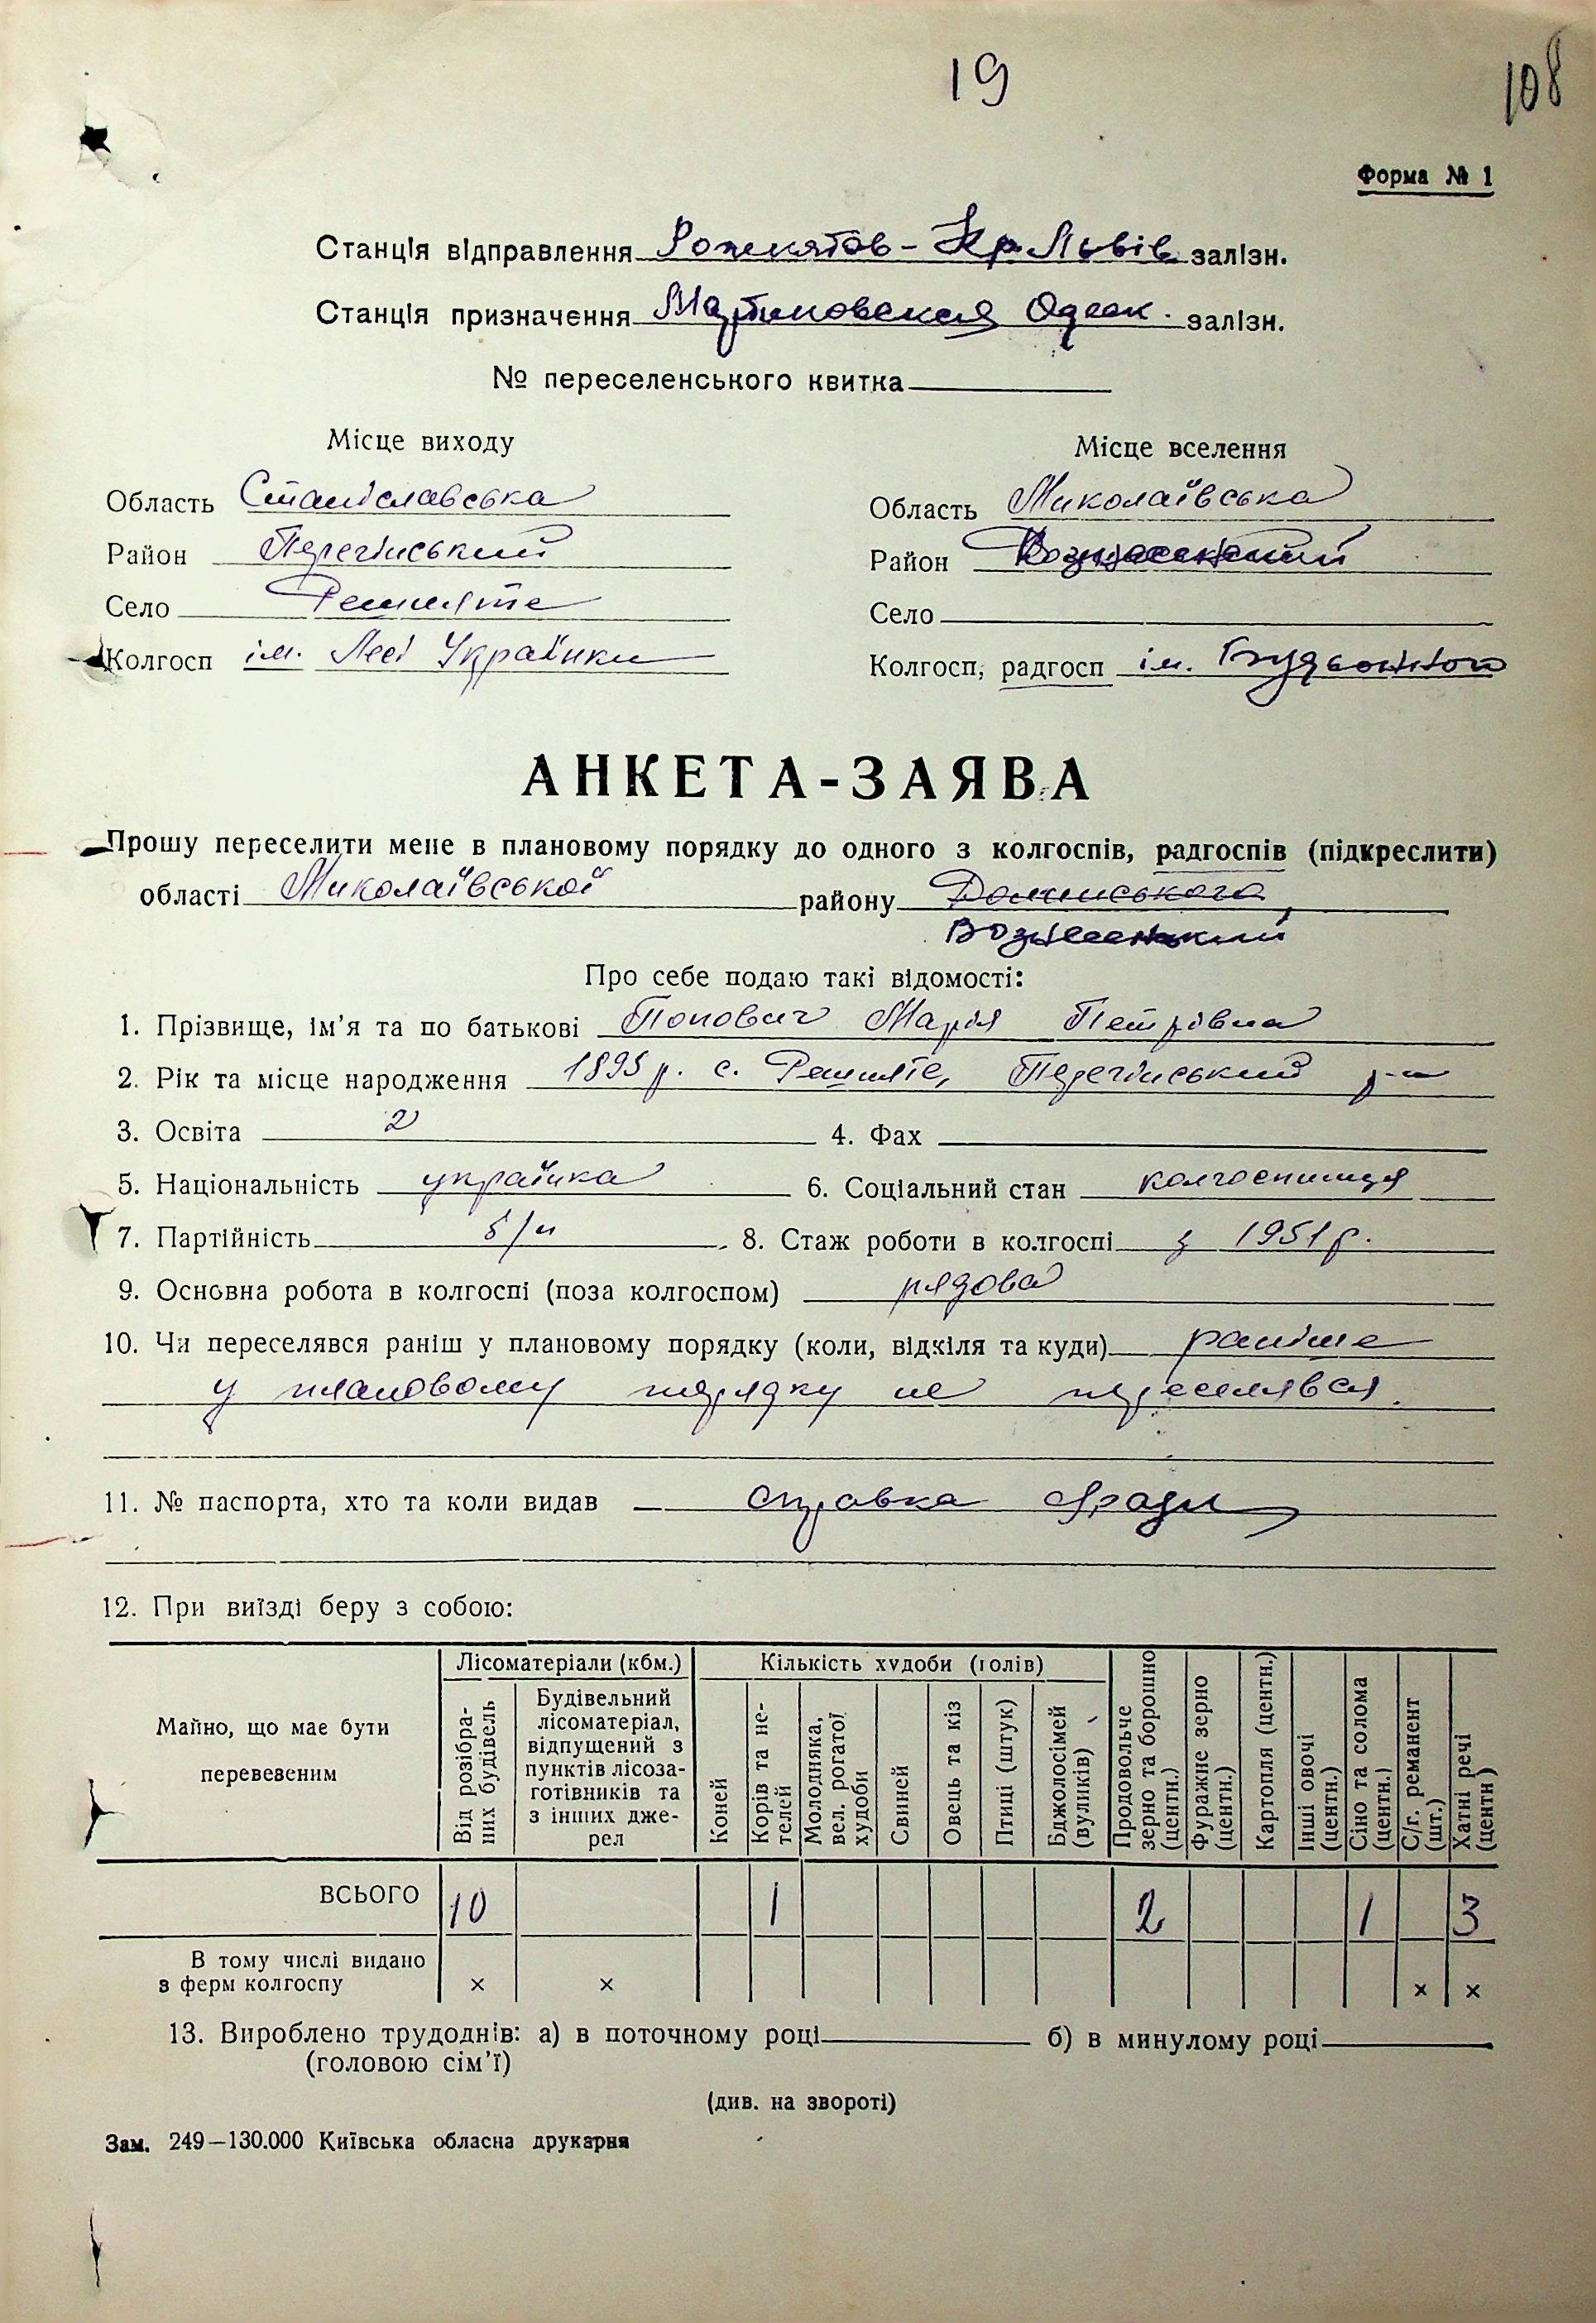 19
108
Форма № 1
Станція відправлення Рожнятов - Кр. Львів залізн.
Станція призначення Мартиновская Одеск. залізн.
№ переселенського квитка
Місце виходу
Місце вселення
Область Станіславська
Область Миколаївська
Район Перегінський
Район Вознесенський
Село Решняте
Село
Колгосп ім. Лесі Українки
Колгосп, радгосп ім. Будьонного
АНКЕТА-ЗАЯВА
Прошу переселити мене в плановому порядку до одного з колгоспів, радгоспів (підкреслити)
області Миколаївської району Долинського
Вознесенський
Про себе подаю такі відомості:
1. Прізвище, ім'я та по батькові Попович Марія Петрівна
2. Рік та місце народження 1895 р. с. Решняте, Перегінський р-н
3. Освіта 2 4. Фах
5. Національність українка 6. Соціальний стан колгоспниця
7. Партійність б/п 8. Стаж роботи в колгоспі з 1951 р.
9. Основна робота в колгоспі (поза колгоспом) рядова
10. Чи переселявся раніш у плановому порядку (коли, відкіля та куди) раніше
у плановому порядку не переселявся.
11. № паспорта, хто та коли видав справка с/ради
12. При виїзді беру з собою:
Майно, що має бути перевезеним
Лісоматеріали (кбм.)
Кількість худоби (голів)
Від розібраних будівель
Будівельний лісоматеріал, відпущений з пунктів лісозаготівників та з інших джерел
Коней
Корів та нетелей
Молодняка, вел. рогатої худоби
Свиней
Овець та кіз
Птиці (штук)
Бджолосімей (вуликів)
Продовольче зерно та борошно (центн.)
Фуражне зерно (центн.)
Картопля (центн.)
Інші овочі (центн.)
Сіно та солома (центн.)
С/г. реманент (шт.)
Хатні речі (центн)
ВСЬОГО 10 1 2 1 3
В тому числі видано
з ферм колгоспу × × × ×
13. Вироблено трудоднів: а) в поточному році б) в минулому році
(головою сім'ї)
(див. на звороті)
Зам. 249—130.000 Київська обласна друкарня